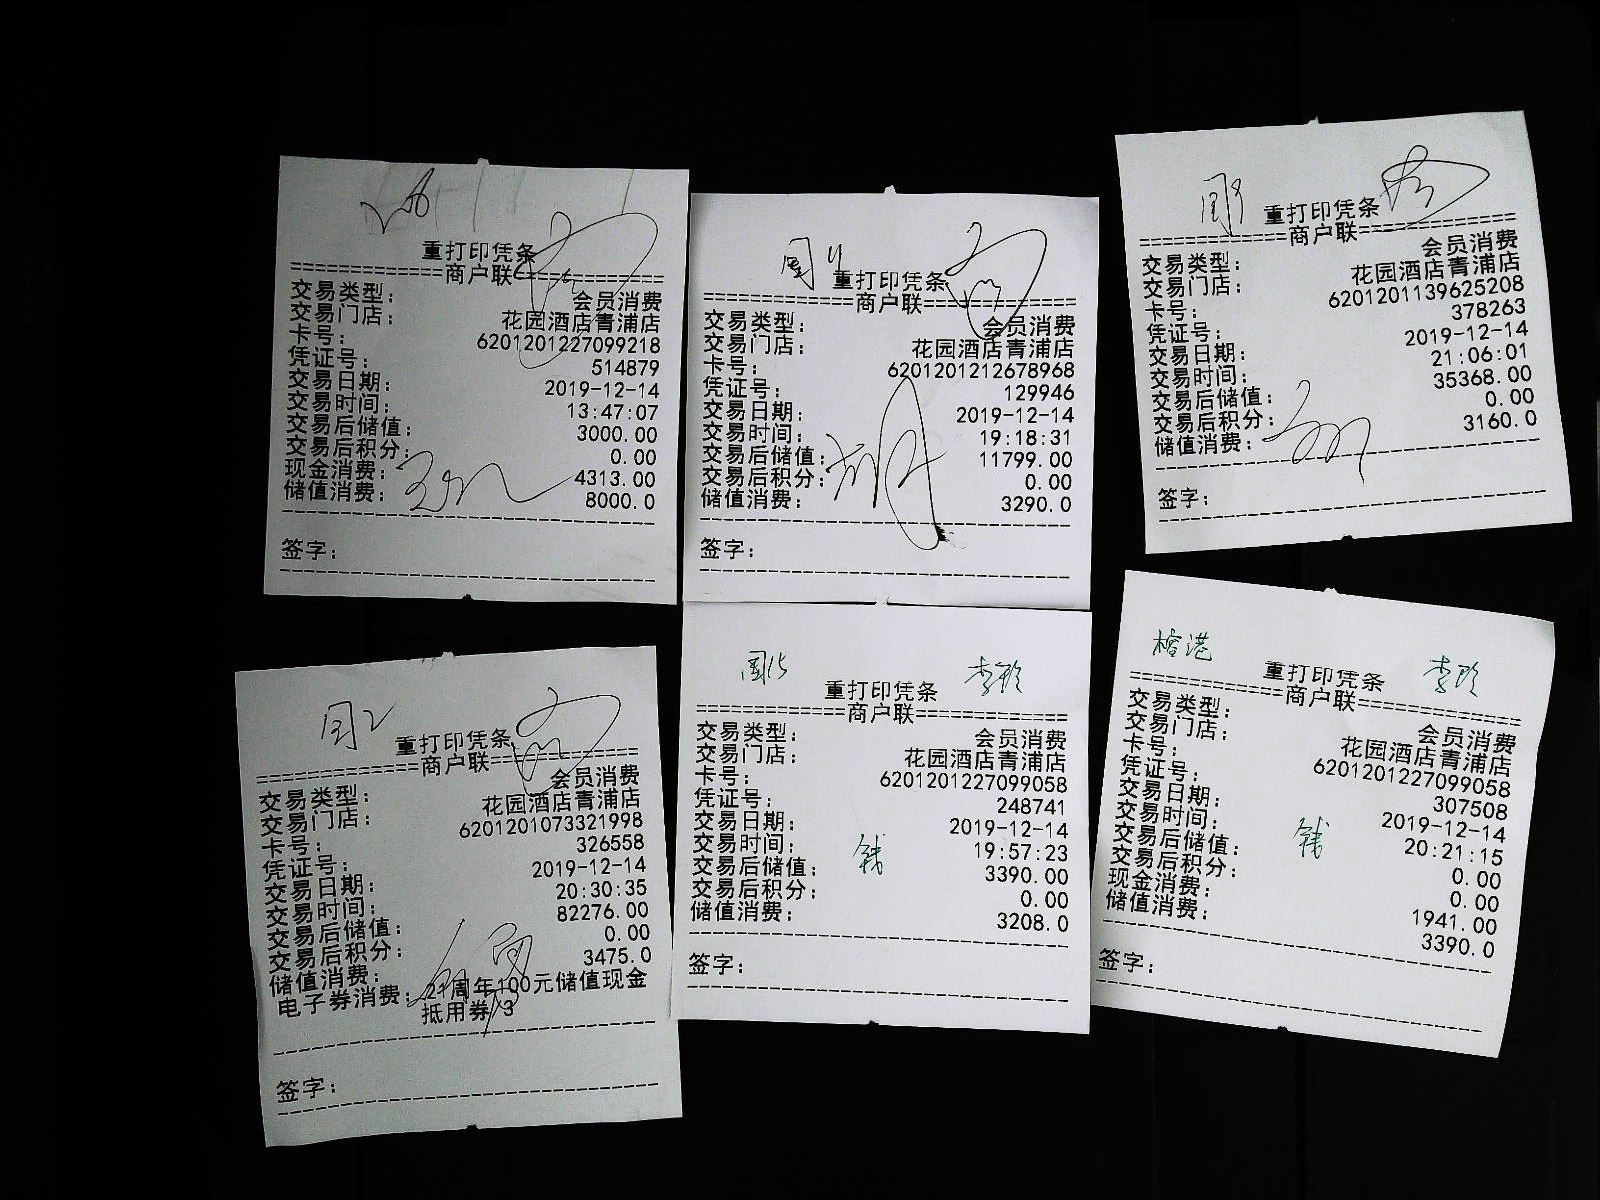 重打印凭条
============商户联============
交易类型: 会员消费
交易门店: 花园酒店青浦店
卡号: 6201201227099218
凭证号: 514879
交易日期: 2019-12-14
交易时间: 13:47:07
交易后储值: 3000.00
交易后积分: 0.00
现金消费: 4313.00
储值消费: 8000.0
签字:
重打印凭条
============商户联============
交易类型: 会员消费
交易门店: 花园酒店青浦店
卡号: 6201201212678968
凭证号: 129946
交易日期: 2019-12-14
交易时间: 19:18:31
交易后储值: 11799.00
交易后积分: 0.00
储值消费: 3290.0
签字:
重打印凭条
============商户联============
交易类型: 会员消费
交易门店: 花园酒店青浦店
卡号: 6201201139625208
凭证号: 378263
交易日期: 2019-12-14
交易时间: 21:06:01
交易后储值: 35368.00
交易后积分: 0.00
储值消费: 3160.0
签字:
重打印凭条
============商户联============
交易类型: 会员消费
交易门店: 花园酒店青浦店
卡号: 6201201073321998
凭证号: 326558
交易日期: 2019-12-14
交易时间: 20:30:35
交易后储值: 82276.00
交易后积分: 0.00
储值消费: 3475.0
电子券消费: 21周年100元储值现金
抵用券/3
签字:
重打印凭条
============商户联============
交易类型: 会员消费
交易门店: 花园酒店青浦店
卡号: 6201201227099058
凭证号: 248741
交易日期: 2019-12-14
交易时间: 19:57:23
交易后储值: 3390.00
交易后积分: 0.00
储值消费: 3208.0
签字:
重打印凭条
============商户联============
交易类型: 会员消费
交易门店: 花园酒店青浦店
卡号: 6201201227099058
凭证号: 307508
交易日期: 2019-12-14
交易时间: 20:21:15
交易后储值: 0.00
交易后积分: 0.00
现金消费: 1941.00
储值消费: 3390.0
签字: